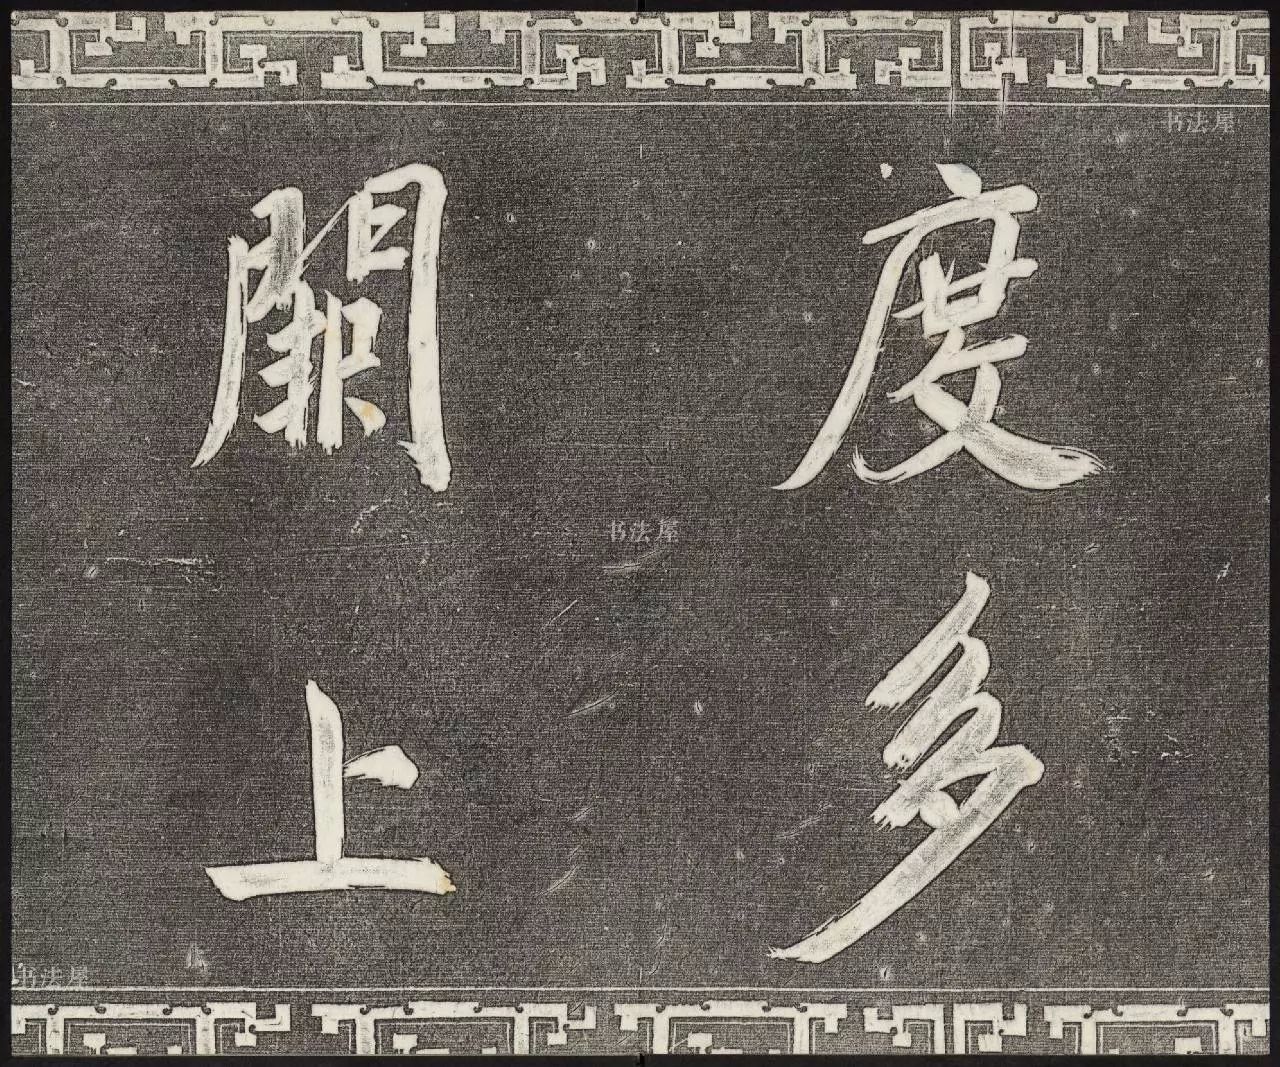 度多
闌上
书法屋
书法屋
书法屋